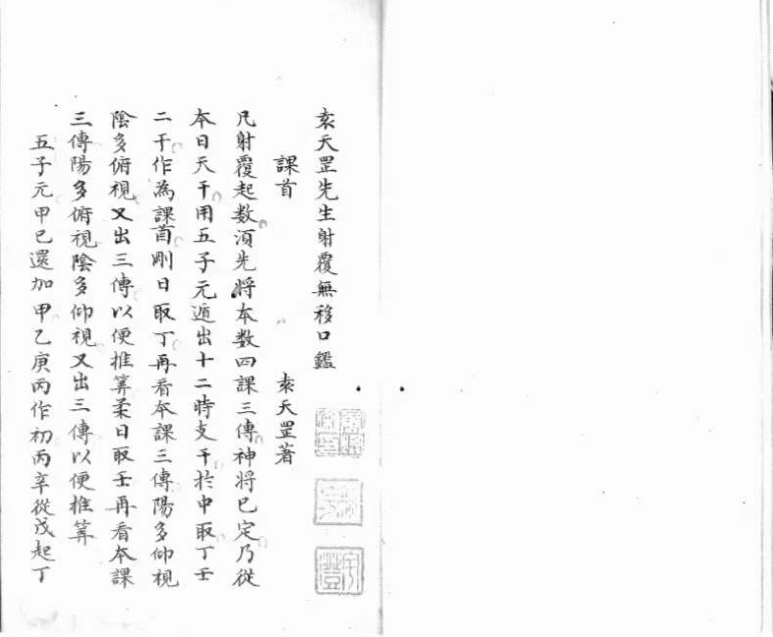 袁天罡先生射覆無移口鑑
課首
袁天罡著
凡射覆起数湏先将本数四課三傳神将已定乃従
本日天干用五子元遁出十二時支干於中取丁壬
二干作為課首剛日取丁再看本課三傳陽多仰視
陰多俯視又出三傳以便推筭柔日取壬再看本課
三傳陽多俯視陰多仰視又出三傳以便推筭
五子元甲已還加甲乙庚丙作初丙辛從戊起丁